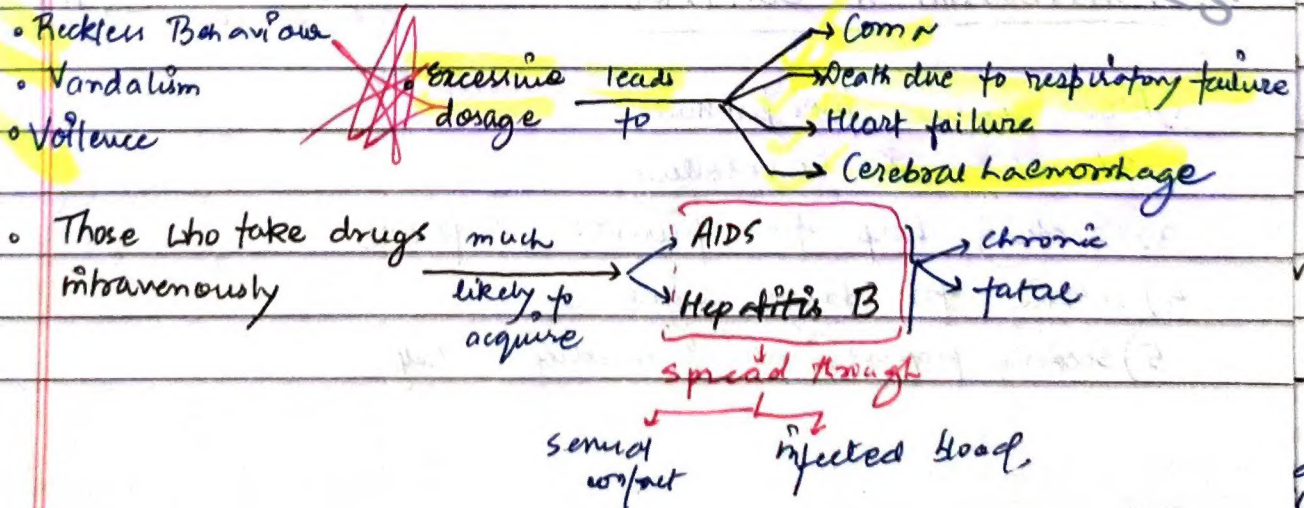 • Reckless Behaviour
• Vandalism
• Voilence
• Excessive dosage
leads to
→ Coma
→ Death due to respiratory failure
→ Heart failure
→ Cerebral haemorrhage
• Those who take drugs
intravenously
much
likely to
acquire
→ AIDS
→ Hepatitis B
→ chronic
→ fatal
spread through
sexual
contact
infected blood,